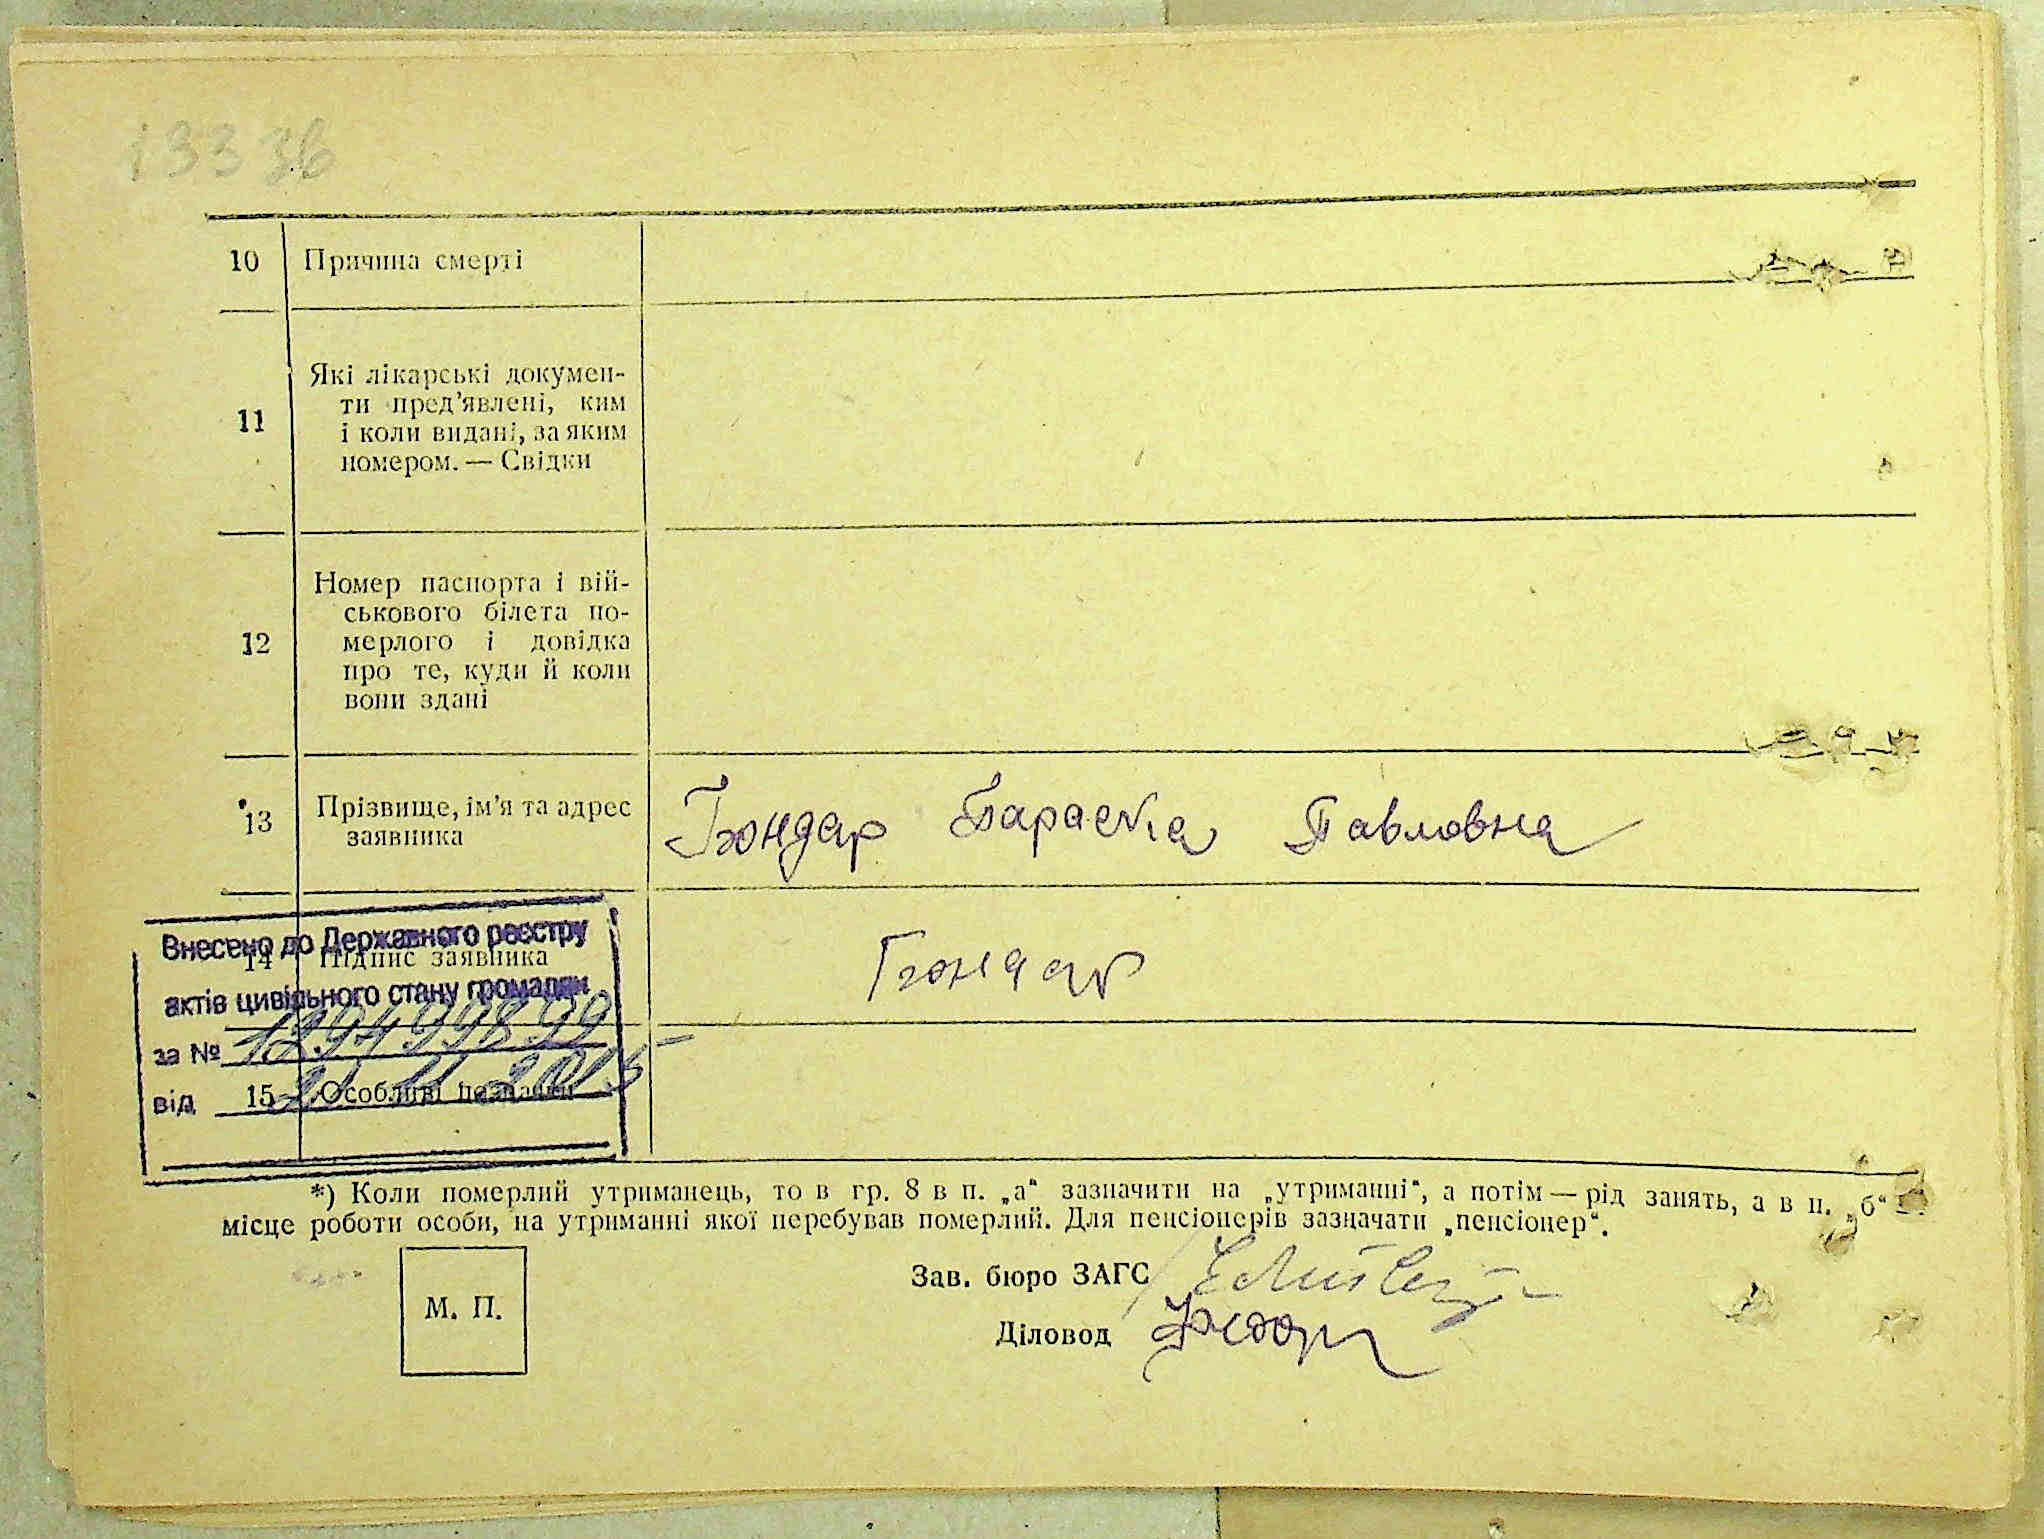 133 зв
10 Причина смерті
11 Які лікарські докумен-
ти пред'явлені, ким
і коли видані, за яким
номером. — Свідки
12 Номер паспорта і вій-
ськового білета по-
мерлого і довідка
про те, куди й коли
вони здані
13 Прізвище, ім'я та адрес
заявника
Бондар Параска Павловна
Внесено до Державного реєстру
14 Підпис заявника
Бондар
актів цивільного стану громадян
за №
від 15 Особливі познаки
*) Коли померлий утриманець, то в гр. 8 в п. „а“ зазначити на „утриманні“, а потім — рід занять, а в п. „б“ —
місце роботи особи, на утриманні якої перебував померлий. Для пенсіонерів зазначати „пенсіонер“.
М. П.
Зав. бюро ЗАГС
Діловод